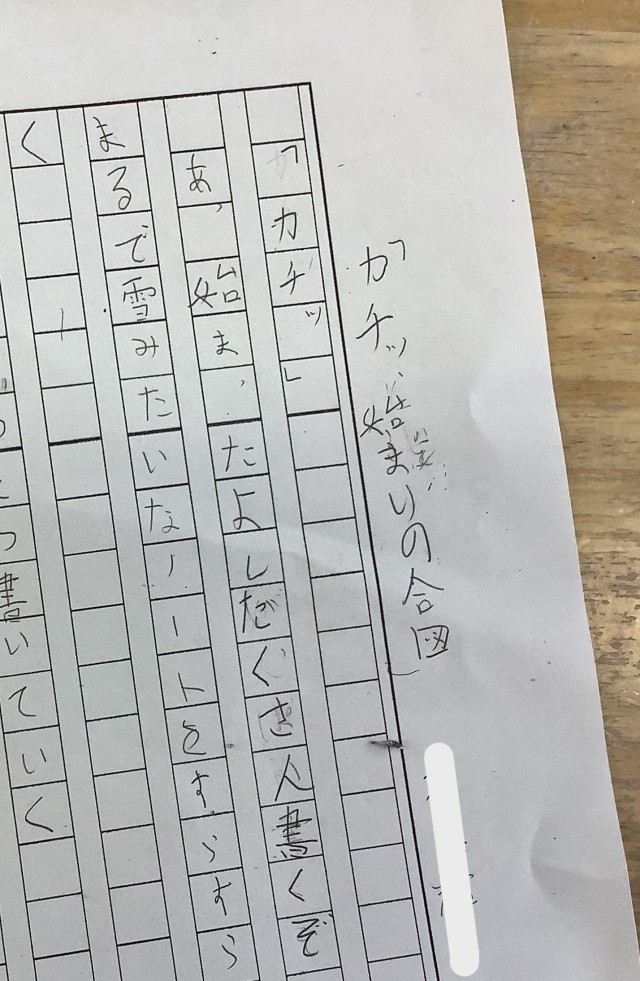 「カチッ、始まりの合図
「カチッ」
あ、始まったよしたくさん書くぞ
まるで雪みたいなノートをすらすら
く
書いていく